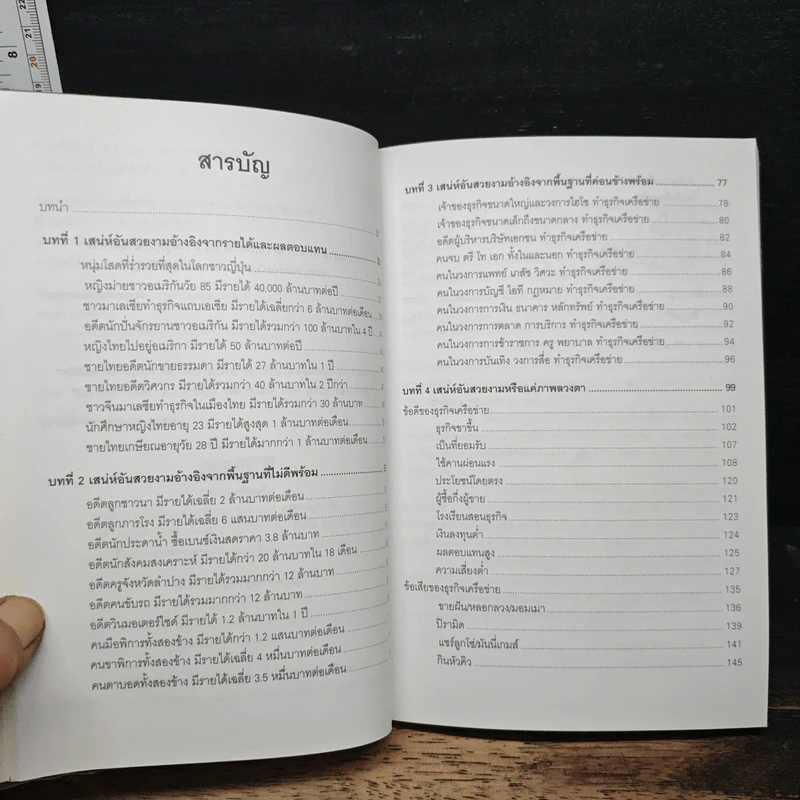 สารบัญ
บทนำ
บทที่ 1 เสน่ห์อันสวยงามอ้างอิงจากรายได้และผลตอบแทน
หนุ่มโสดที่ร่ำรวยที่สุดในโลกชาวญี่ปุ่น
หญิงม่ายชาวอเมริกันวัย 85 มีรายได้ 40,000 ล้านบาทต่อปี
ชาวมาเลเซียทำธุรกิจแถบเอเชีย มีรายได้เฉลี่ยกว่า 6 ล้านบาทต่อเดือน
อดีตนักปั่นจักรยานชาวอเมริกัน มีรายได้รวมกว่า 100 ล้านบาทใน 4 ปี
หญิงไทยไปอยู่อเมริกา มีรายได้ 50 ล้านบาทต่อปี
ชายไทยอดีตนักขายธรรมดา มีรายได้ 27 ล้านบาทใน 1 ปี
ชายไทยอดีตวิศวกร มีรายได้รวมกว่า 40 ล้านบาทใน 2 ปีกว่า
ชาวจีนมาเลเซียทำธุรกิจในเมืองไทย มีรายได้รวมกว่า 30 ล้านบาท
นักศึกษาหญิงไทยอายุ 23 มีรายได้สูงสุด 1 ล้านบาทต่อเดือน
ชายไทยเกษียณอายุวัย 28 ปี มีรายได้มากกว่า 1 ล้านบาทต่อเดือน
บทที่ 2 เสน่ห์อันสวยงามอ้างอิงจากพื้นฐานที่ไม่ดีพร้อม
อดีตลูกชาวนา มีรายได้เฉลี่ย 2 ล้านบาทต่อเดือน
อดีตลูกภารโรง มีรายได้เฉลี่ย 6 แสนบาทต่อเดือน
อดีตนักประดาน้ำ ซื้อเบนซ์เงินสดราคา 3.8 ล้านบาท
อดีตนักสังคมสงเคราะห์ มีรายได้กว่า 20 ล้านบาทใน 18 เดือน
อดีตครูจังหวัดลำปาง มีรายได้รวมมากกว่า 12 ล้านบาท
อดีตคนขับรถ มีรายได้รวมมากกว่า 12 ล้านบาท
อดีตวินมอเตอร์ไซด์ มีรายได้ 1.2 ล้านบาทใน 1 ปี
คนมือพิการทั้งสองข้าง มีรายได้กว่า 1.2 แสนบาทต่อเดือน
คนขาพิการทั้งสองข้าง มีรายได้เฉลี่ย 4 หมื่นบาทต่อเดือน
คนตาบอดทั้งสองข้าง มีรายได้เฉลี่ย 3.5 หมื่นบาทต่อเดือน
บทที่ 3 เสน่ห์อันสวยงามอ้างอิงจากพื้นฐานที่ค่อนข้างพร้อม 77
เจ้าของธุรกิจขนาดใหญ่และวงการไฮโซ ทำธุรกิจเครือข่าย 78
เจ้าของธุรกิจขนาดเล็กถึงขนาดกลาง ทำธุรกิจเครือข่าย 80
อดีตผู้บริหารบริษัทเอกชน ทำธุรกิจเครือข่าย 82
คนจบ ตรี โท เอก ทั้งในและนอก ทำธุรกิจเครือข่าย 84
คนในวงการแพทย์ เภสัช วิศวะ ทำธุรกิจเครือข่าย 86
คนในวงการบัญชี ไอที กฎหมาย ทำธุรกิจเครือข่าย 88
คนในวงการการเงิน ธนาคาร หลักทรัพย์ ทำธุรกิจเครือข่าย 90
คนในวงการการตลาด การบริการ ทำธุรกิจเครือข่าย 92
คนในวงการข้าราชการ ครู พยาบาล ทำธุรกิจเครือข่าย 94
คนในวงการบันเทิง วงการสื่อ ทำธุรกิจเครือข่าย 96
บทที่ 4 เสน่ห์อันสวยงามหรือแค่ภาพลวงตา 99
ข้อดีของธุรกิจเครือข่าย 101
ธุรกิจขาขึ้น 102
เป็นที่ยอมรับ 107
ใช้คานผ่อนแรง 108
ประโยชน์โดยตรง 120
ผู้ซื้อกึ่งผู้ขาย 121
โรงเรียนสอนธุรกิจ 123
เงินลงทุนต่ำ 124
ผลตอบแทนสูง 125
ความเสี่ยงต่ำ 127
ข้อเสียของธุรกิจเครือข่าย 135
ขายฝัน/หลอกลวง/มอมเมา 136
ปิรามิด 139
แชร์ลูกโซ่/มันนี่เกมส์ 141
กินหัวคิว 145
8
22
21
20
19